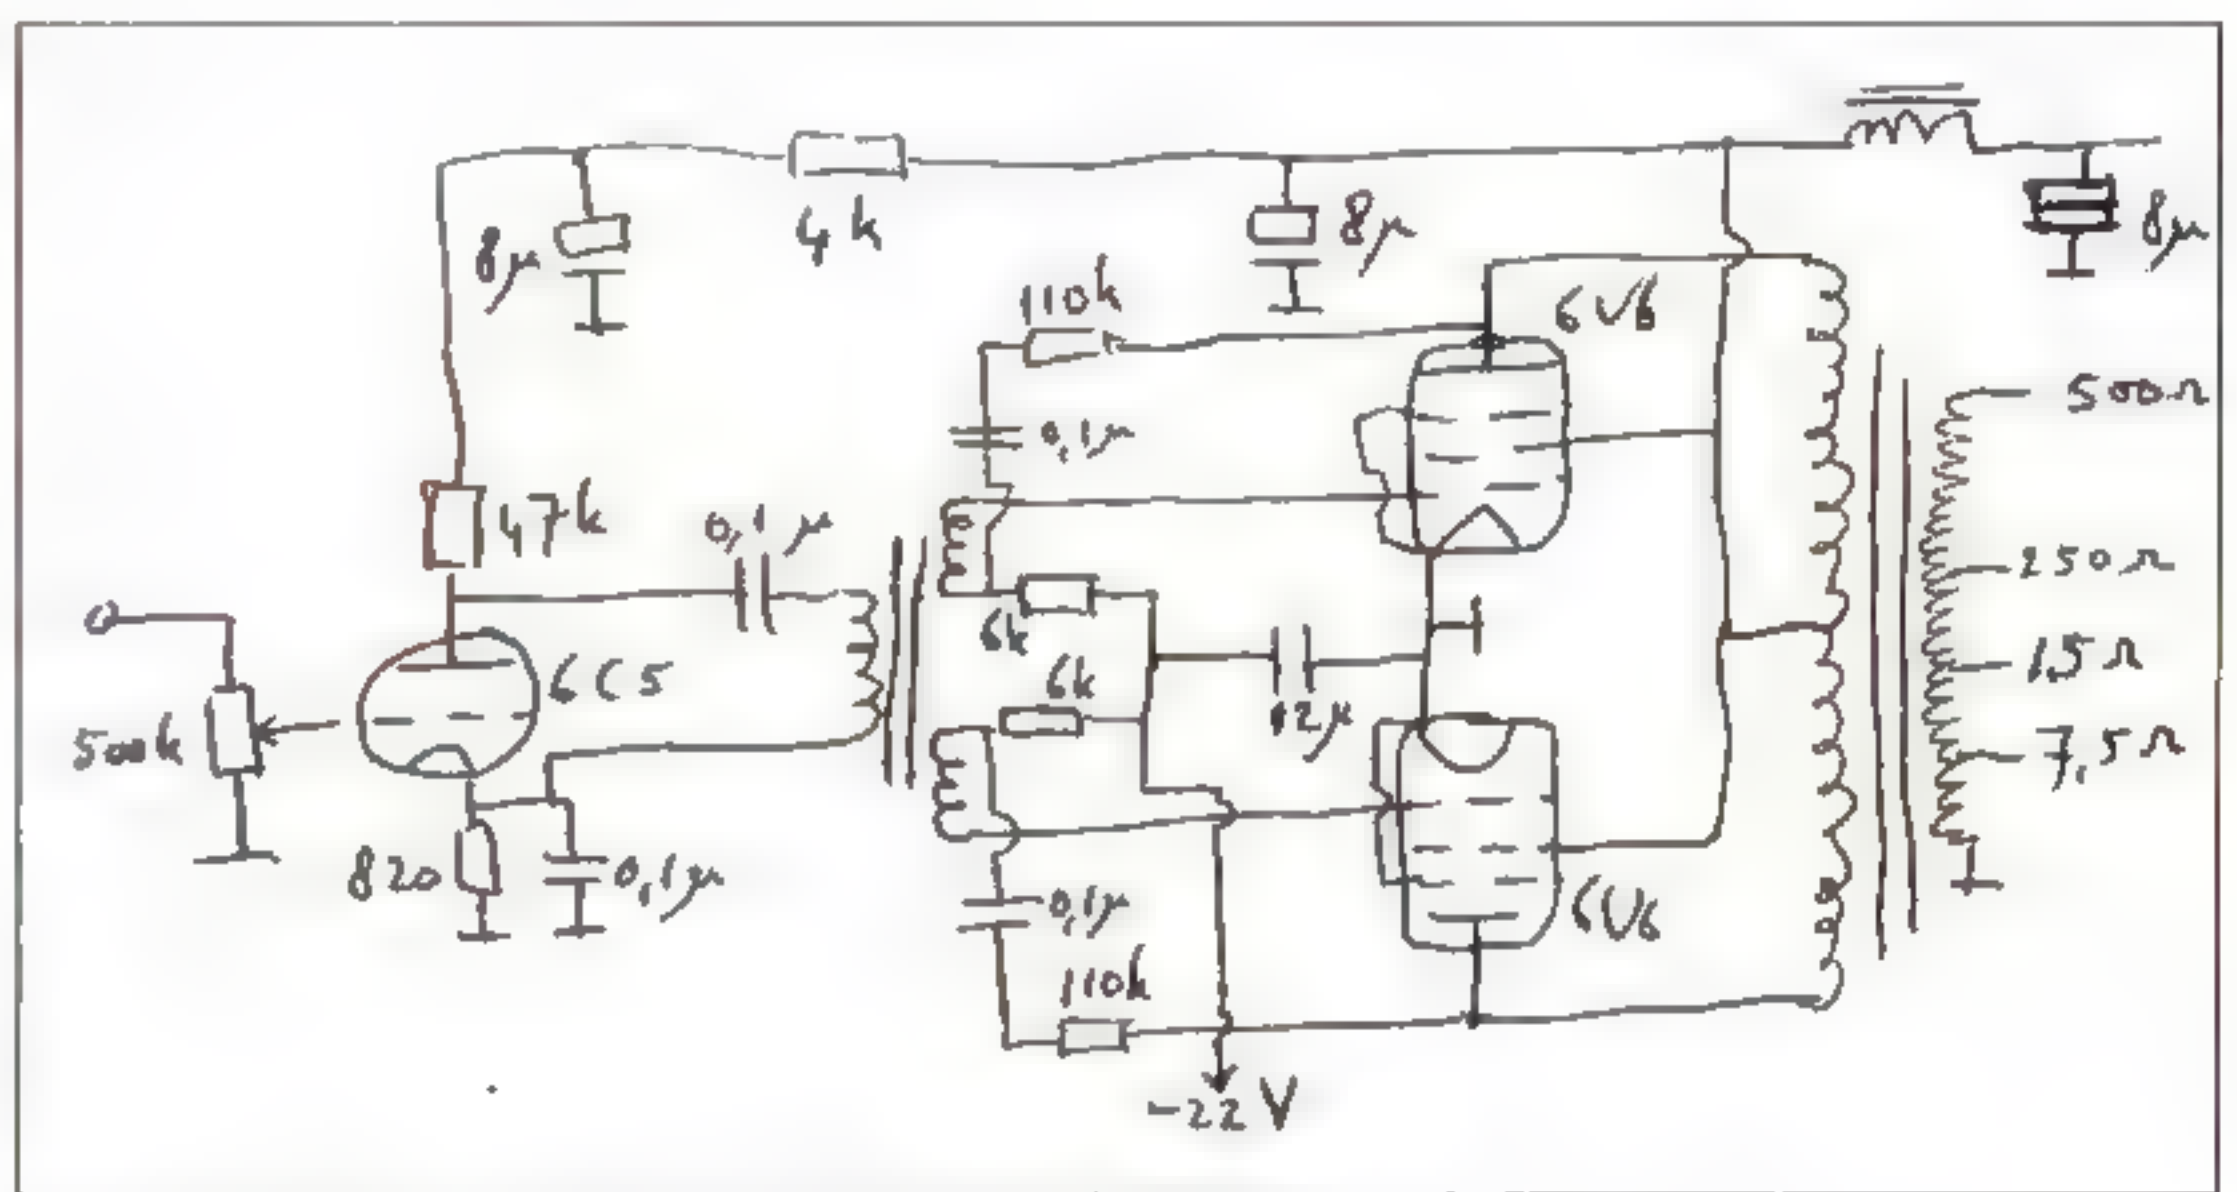 8μ
4k
8μ
8μ
110k
6V6
500Ω
0,1μ
47k
0,1μ
250Ω
6k
6C5
15Ω
6k
500k
7,5Ω
820
0,1μ
0,1μ
6V6
110k
-22 V